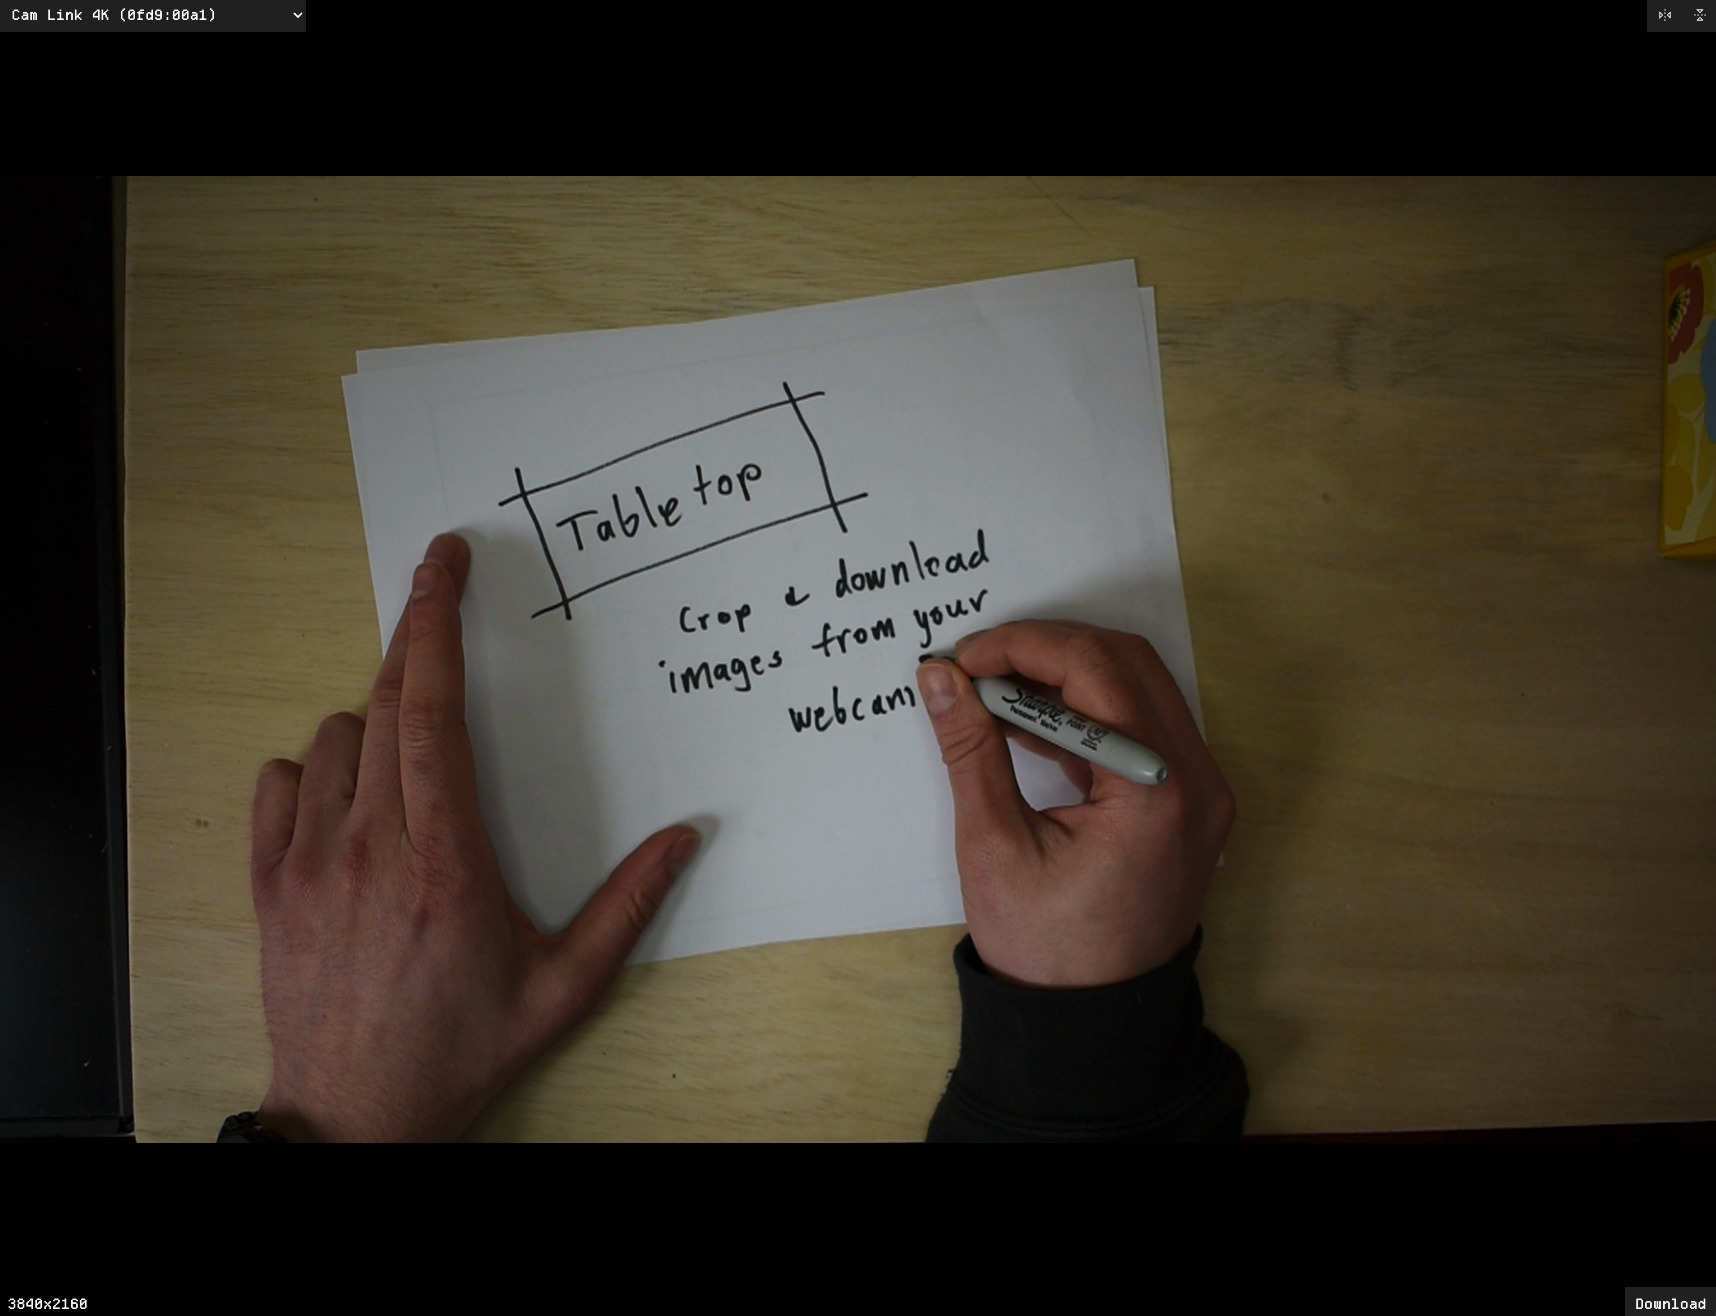 Cam Link 4K (0fd9:00a1)
Table top
Crop & download
images from your
webcam
Sharpie.
Permanent Marker
3840x2160
Download